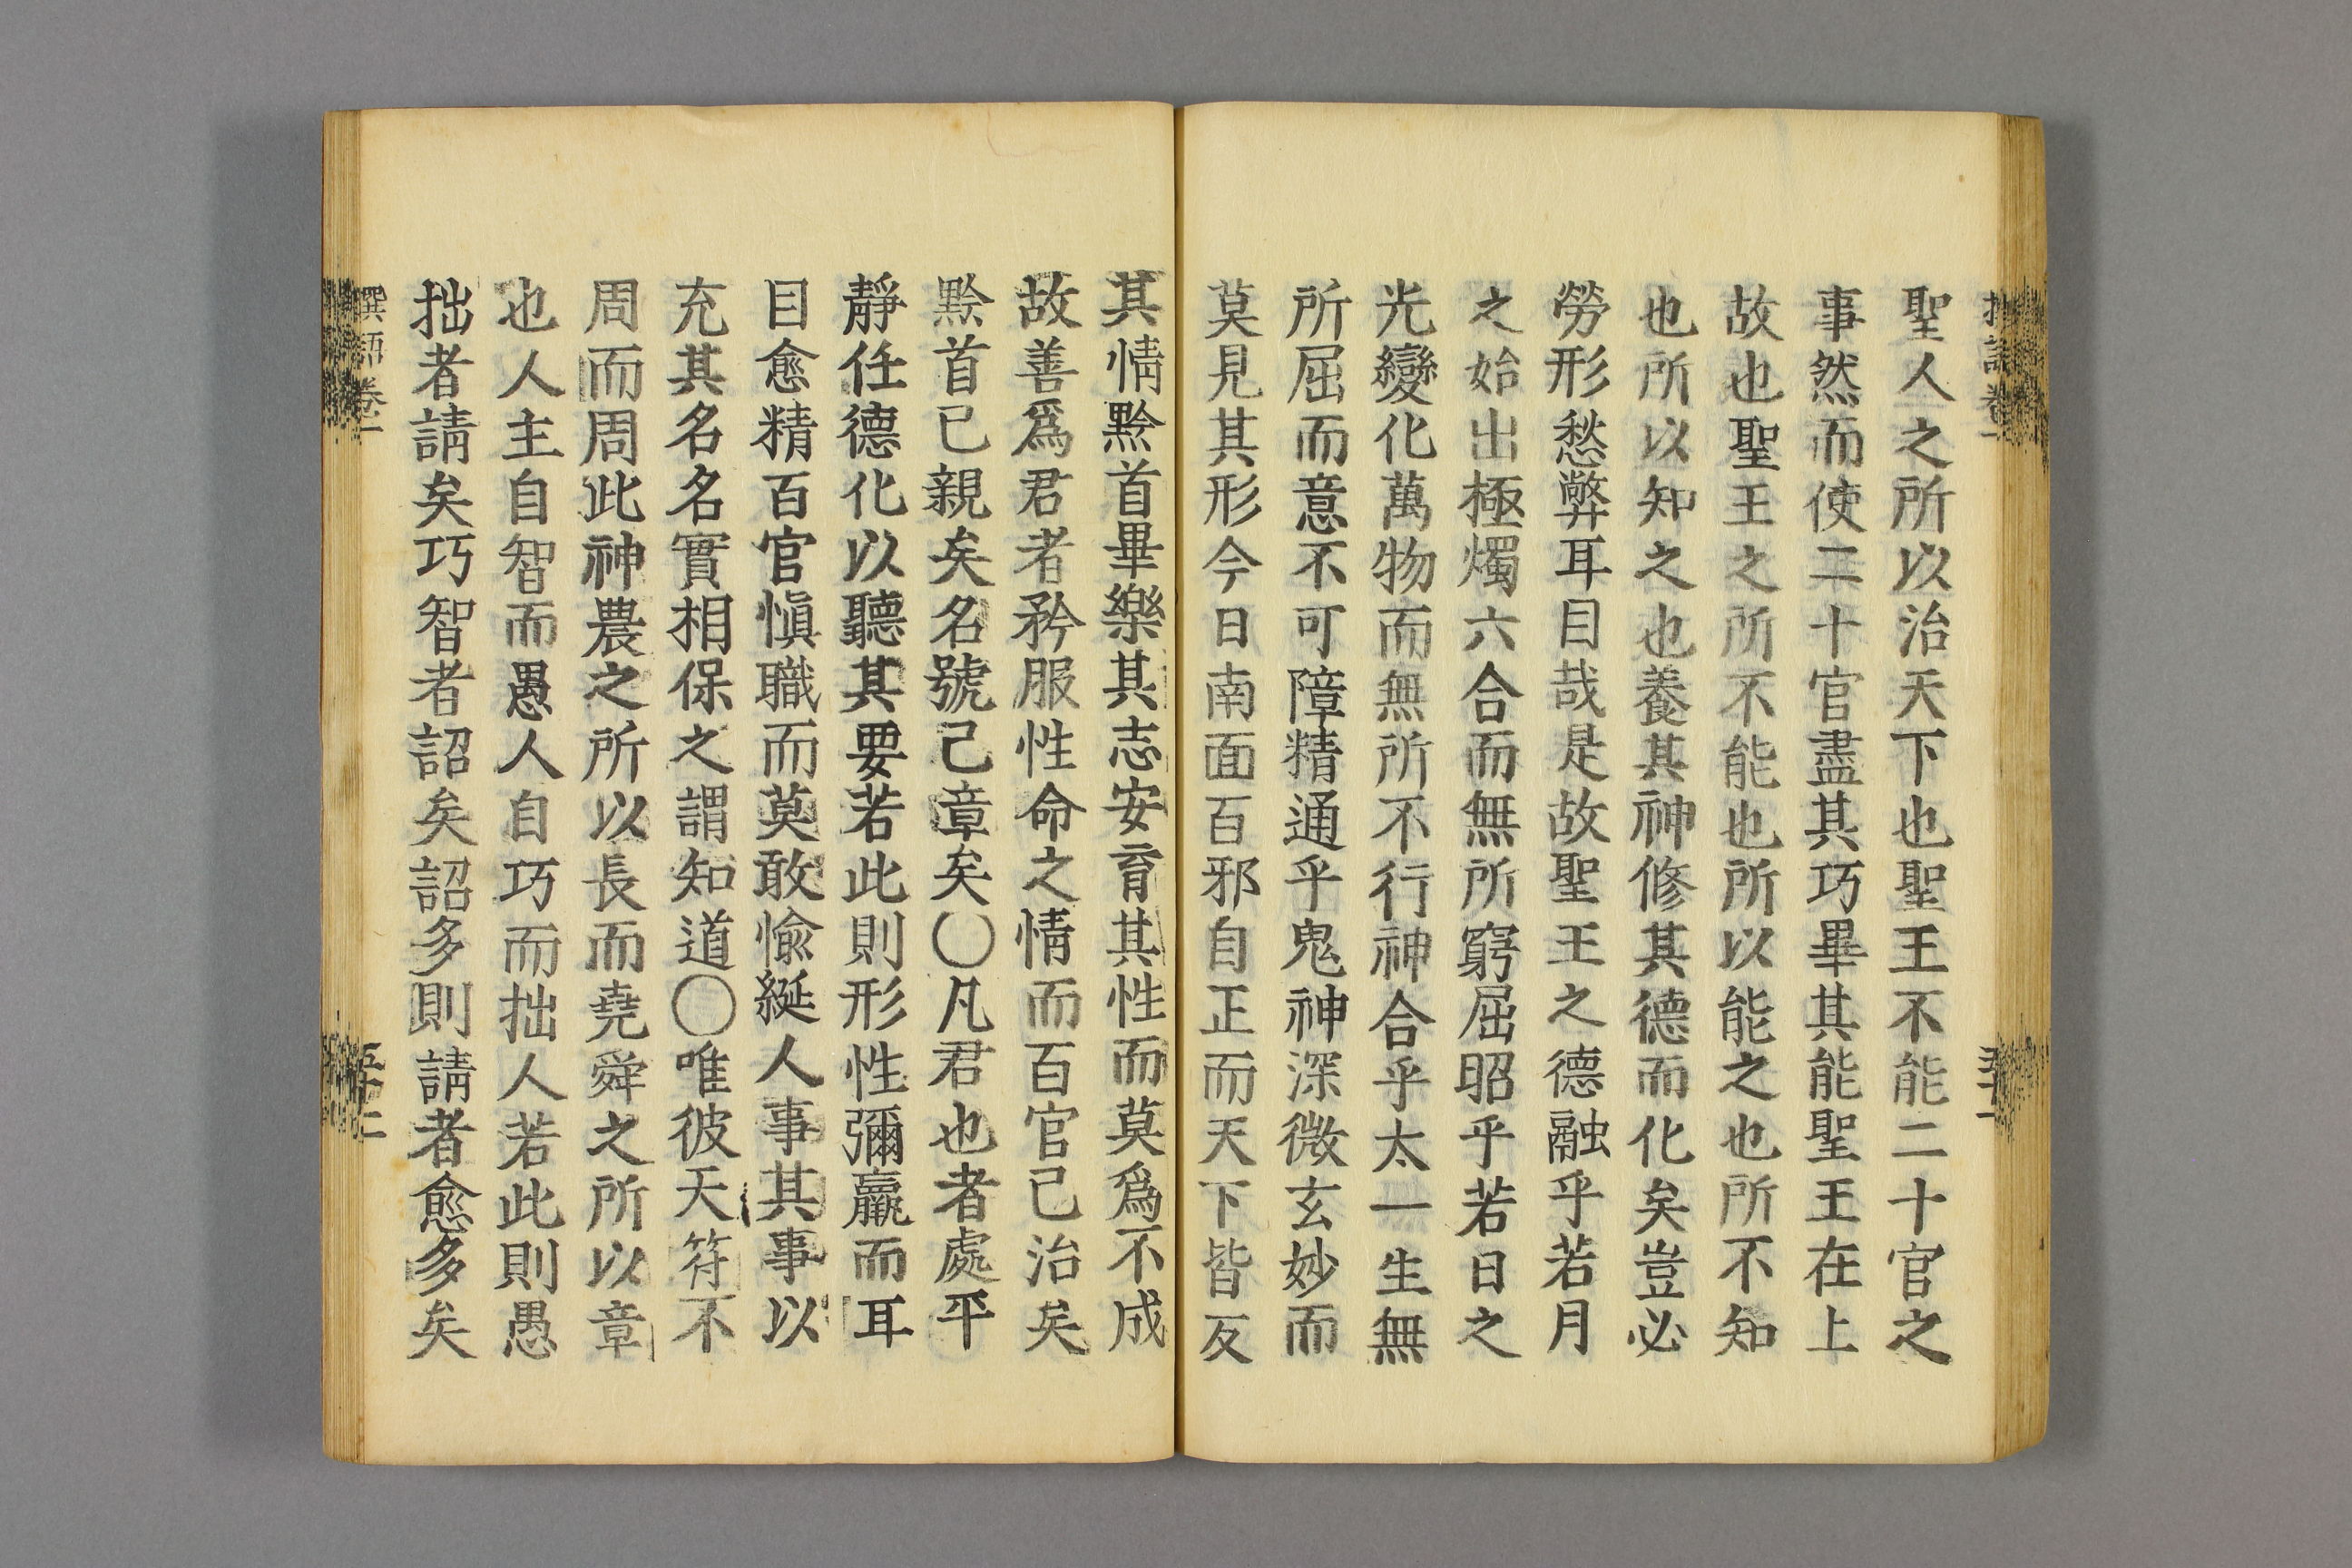 聖人之所以治天下也聖王不能二十官之
事然而使二十官盡其巧畢其能聖王在上
故也聖王之所不能也所以能之也所不知
也所以知之也養其神修其德而化矣豈必
勞形愁弊耳目哉是故聖王之德融乎若月
之始出極燭六合而無所窮屈昭乎若日之
光變化萬物而無所不行神合乎太一生無
所屈而意不可障精通乎鬼神深微玄妙而
莫見其形今日南面百邪自正而天下皆反
其情黔首畢樂其志安育其性而莫爲不成
故善爲君者矜服性命之情而百官已治矣
黔首已親矣名號已章矣○凡君也者處平
靜任德化以聽其要若此則形性彌羸而耳
目愈精百官愼職而莫敢愉綖人事其事以
充其名名實相保之謂知道○唯彼天符不
周而周此神農之所以長而堯舜之所以章
也人主自智而愚人自巧而拙人若此則愚
拙者請矣巧智者詔矣詔多則請者愈多矣
語卷一